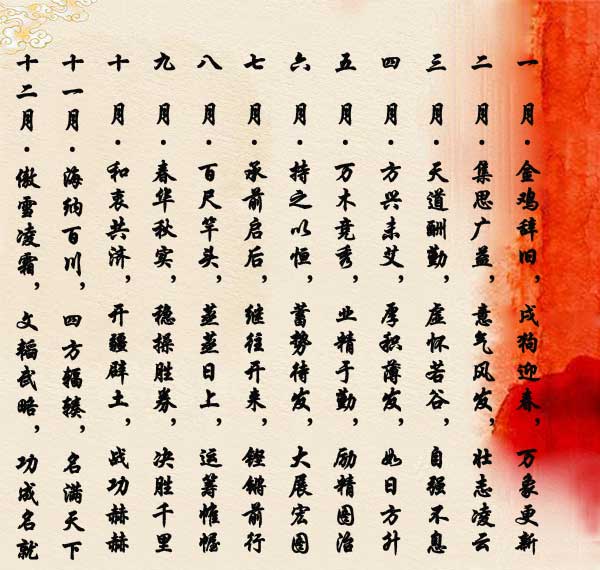 一月·金鸡辞旧，戌狗迎春，万象更新
二月·集思广益，意气风发，壮志凌云
三月·天道酬勤，虚怀若谷，自强不息
四月·方兴未艾，厚积薄发，如日方升
五月·万木竞秀，业精于勤，励精图治
六月·持之以恒，蓄势待发，大展宏图
七月·承前启后，继往开来，铿锵前行
八月·百尺竿头，蒸蒸日上，运筹惟幄
九月·春华秋实，稳操胜券，决胜千里
十月·和衷共济，开疆辟土，战功赫赫
十一月·海纳百川，四方辐辏，名满天下
十二月·傲雪凌霜，文韬武略，功成名就